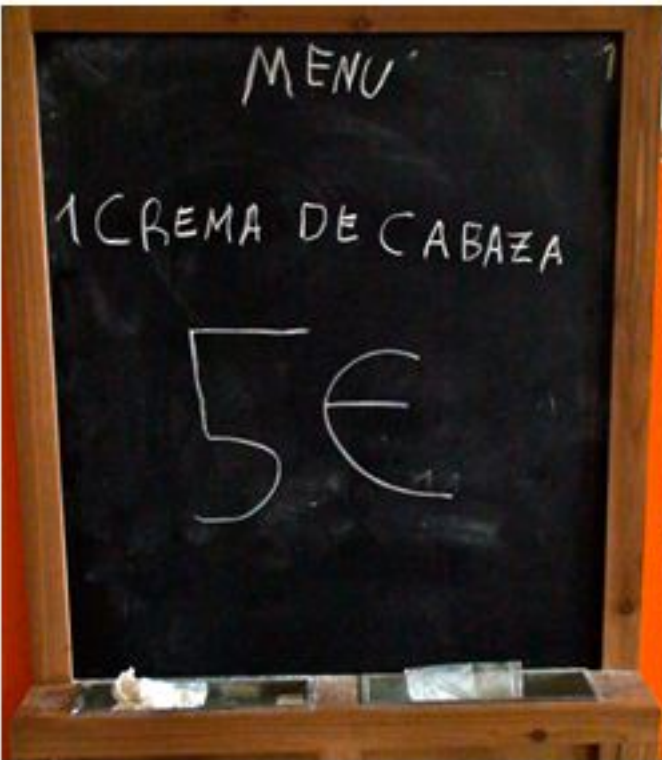 MENU´
1 CREMA DE CABAZA
5€